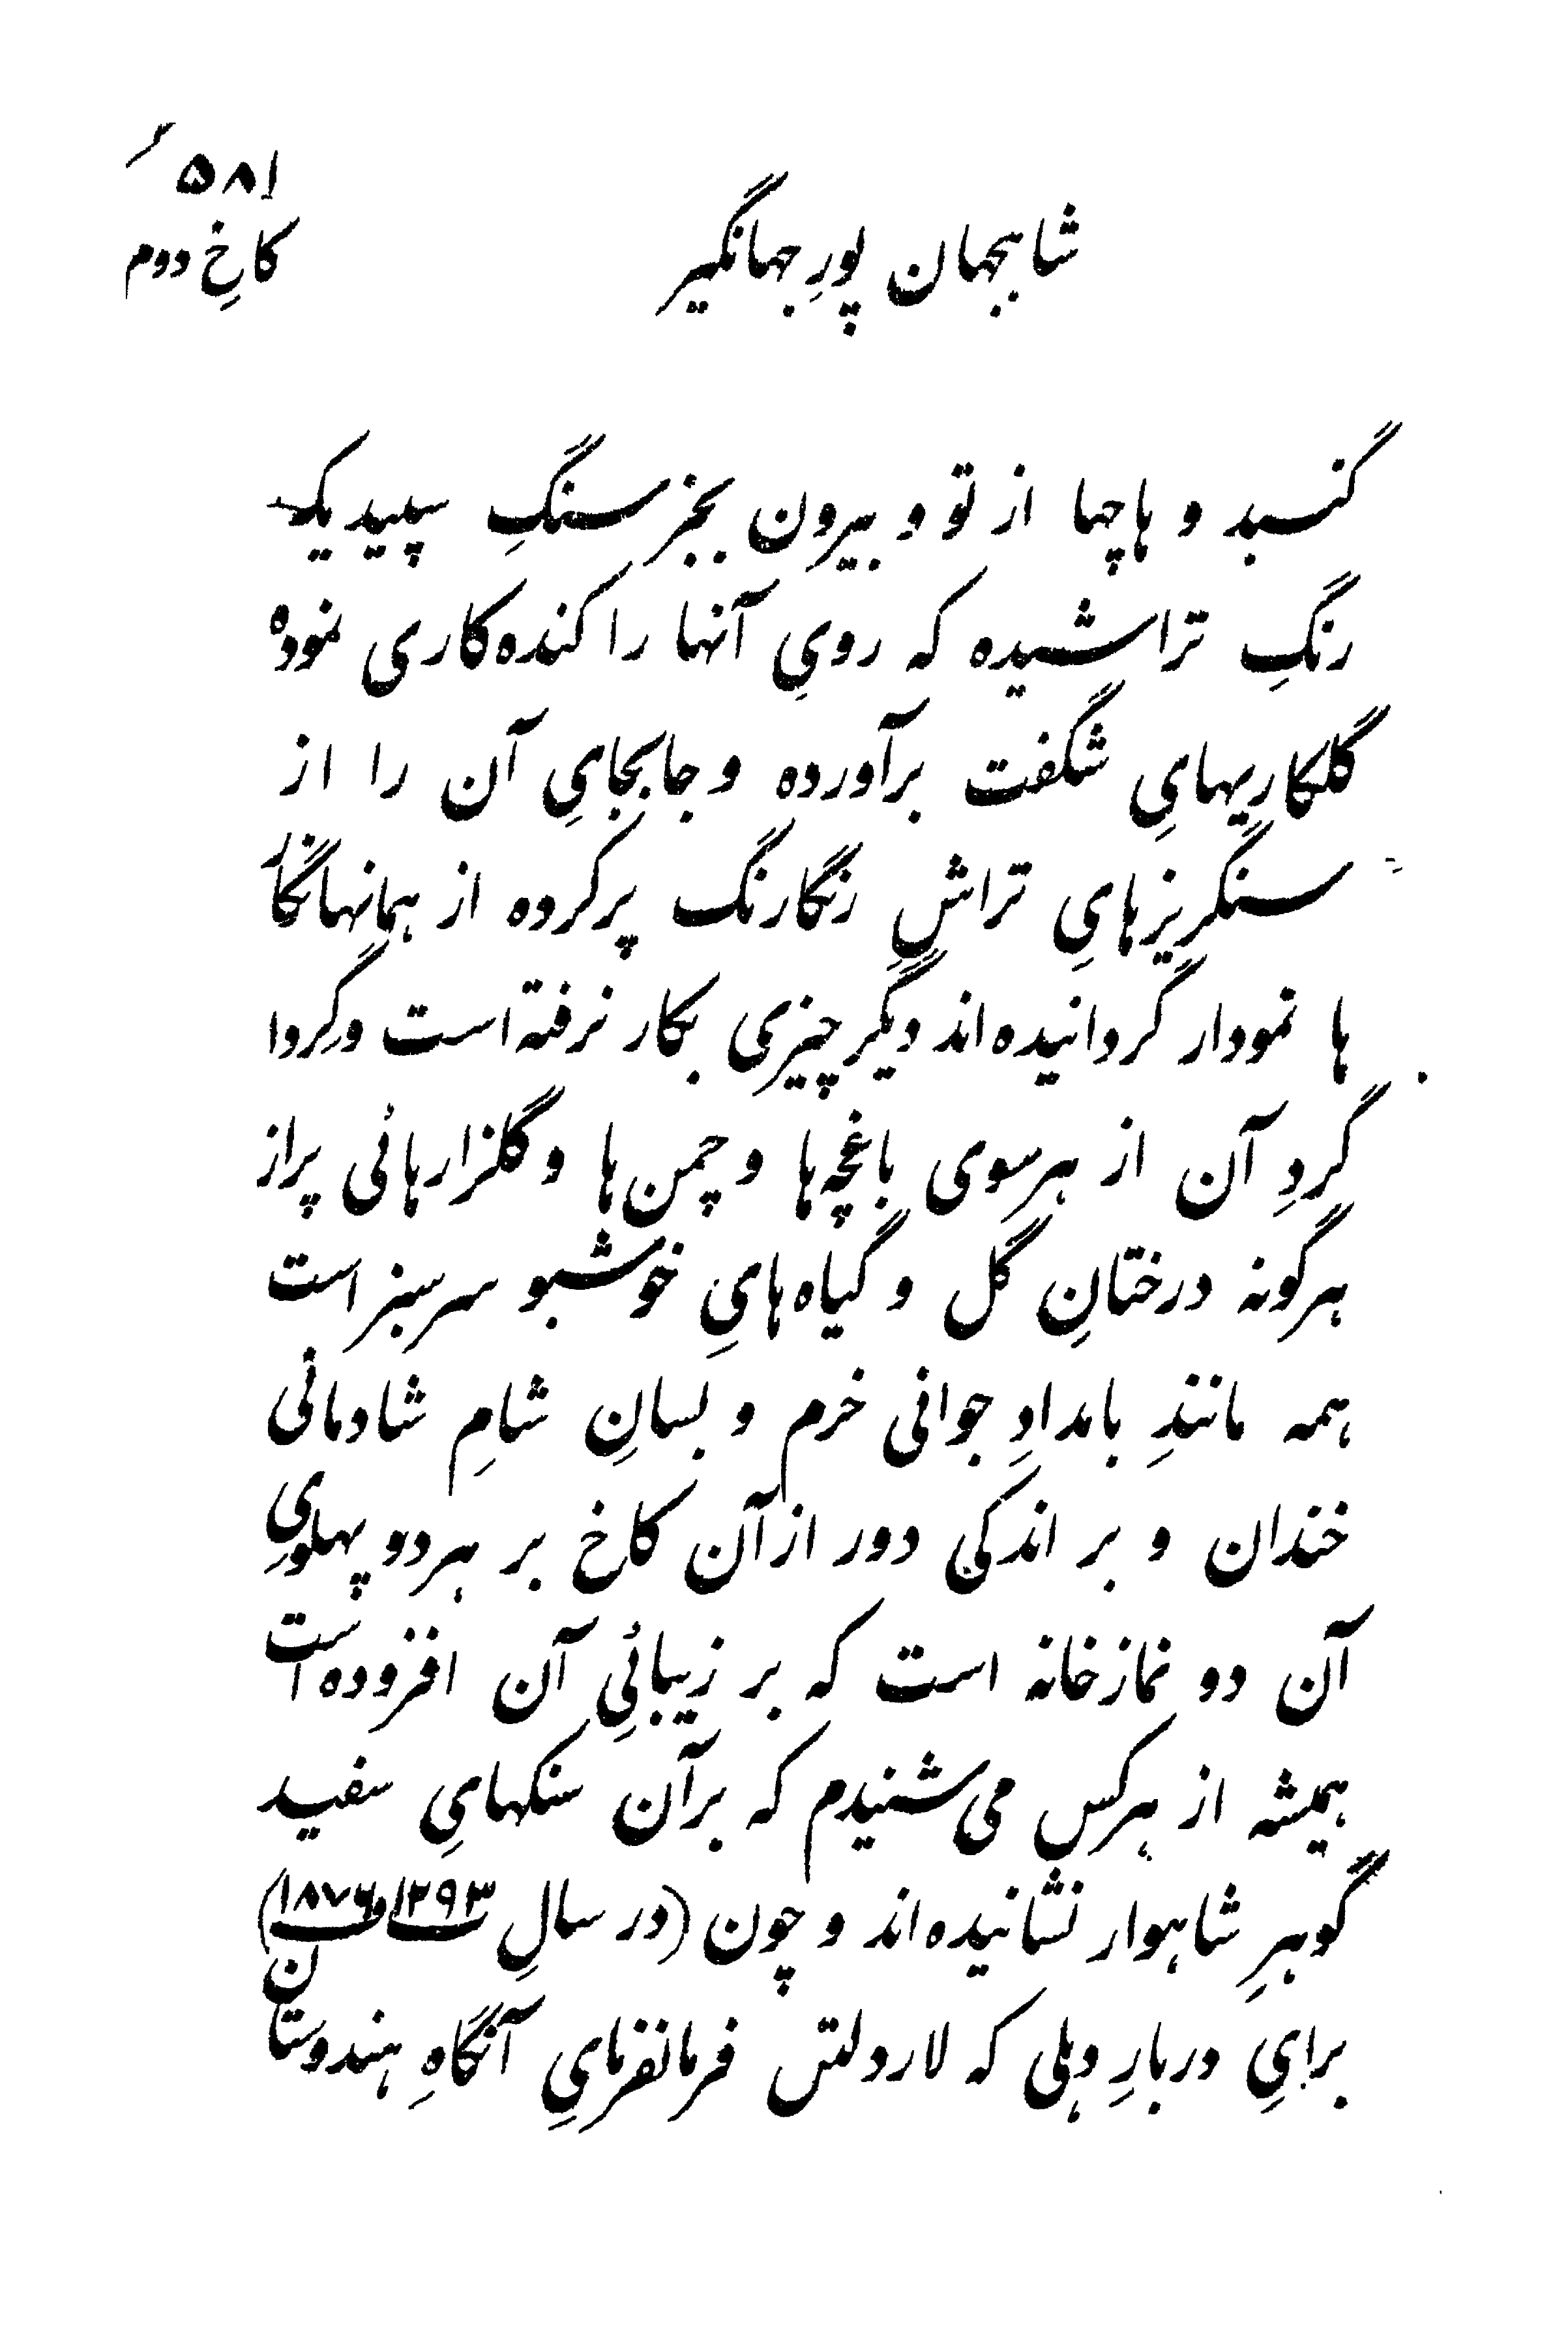 ۵۸۱
کاخِ دوم
شاهجهان پورِ جهانگیر
گنبد و هاچها از تو و بیرون بجز سنگِ سپید یک
رنگِ تراشیده که رویِ آنها را کنده‌کاری نموده
گلکاریهایِ شگفت برآورده و جابجایِ آن را از
سنگریزهایِ تراشِ رنگارنگ پرکرده از همانها نگار
ها نمودار گردانیده‌اند دیگر چیزی بکار نرفته است و گِردا
گِردِ آن از هرسوی باغچه‌ها و چمن‌ها و گلزارهائی پراز
هرگونه درختانِ گل و گیاه‌هایِ خوشبو سرسبز است
همه مانندِ بامدادِ جوانی خرم و بسانِ شامِ شادمانی
خندان و بر اندکی دور از آن کاخ بر هردو پهلویِ
آن دو نمازخانه است که بر زیبائیِ آن افزوده است
همیشه از هرکس می‌شنیدم که برآن سنگهایِ سفید
گوهرِ شاهوار نشانیده‌اند و چون (در سالِ ۱۲۹۳ ۱۸۷۶)
برایِ دربارِ دهلی که لارد لتن فرمانفرمایِ آنگاهِ هندوستان